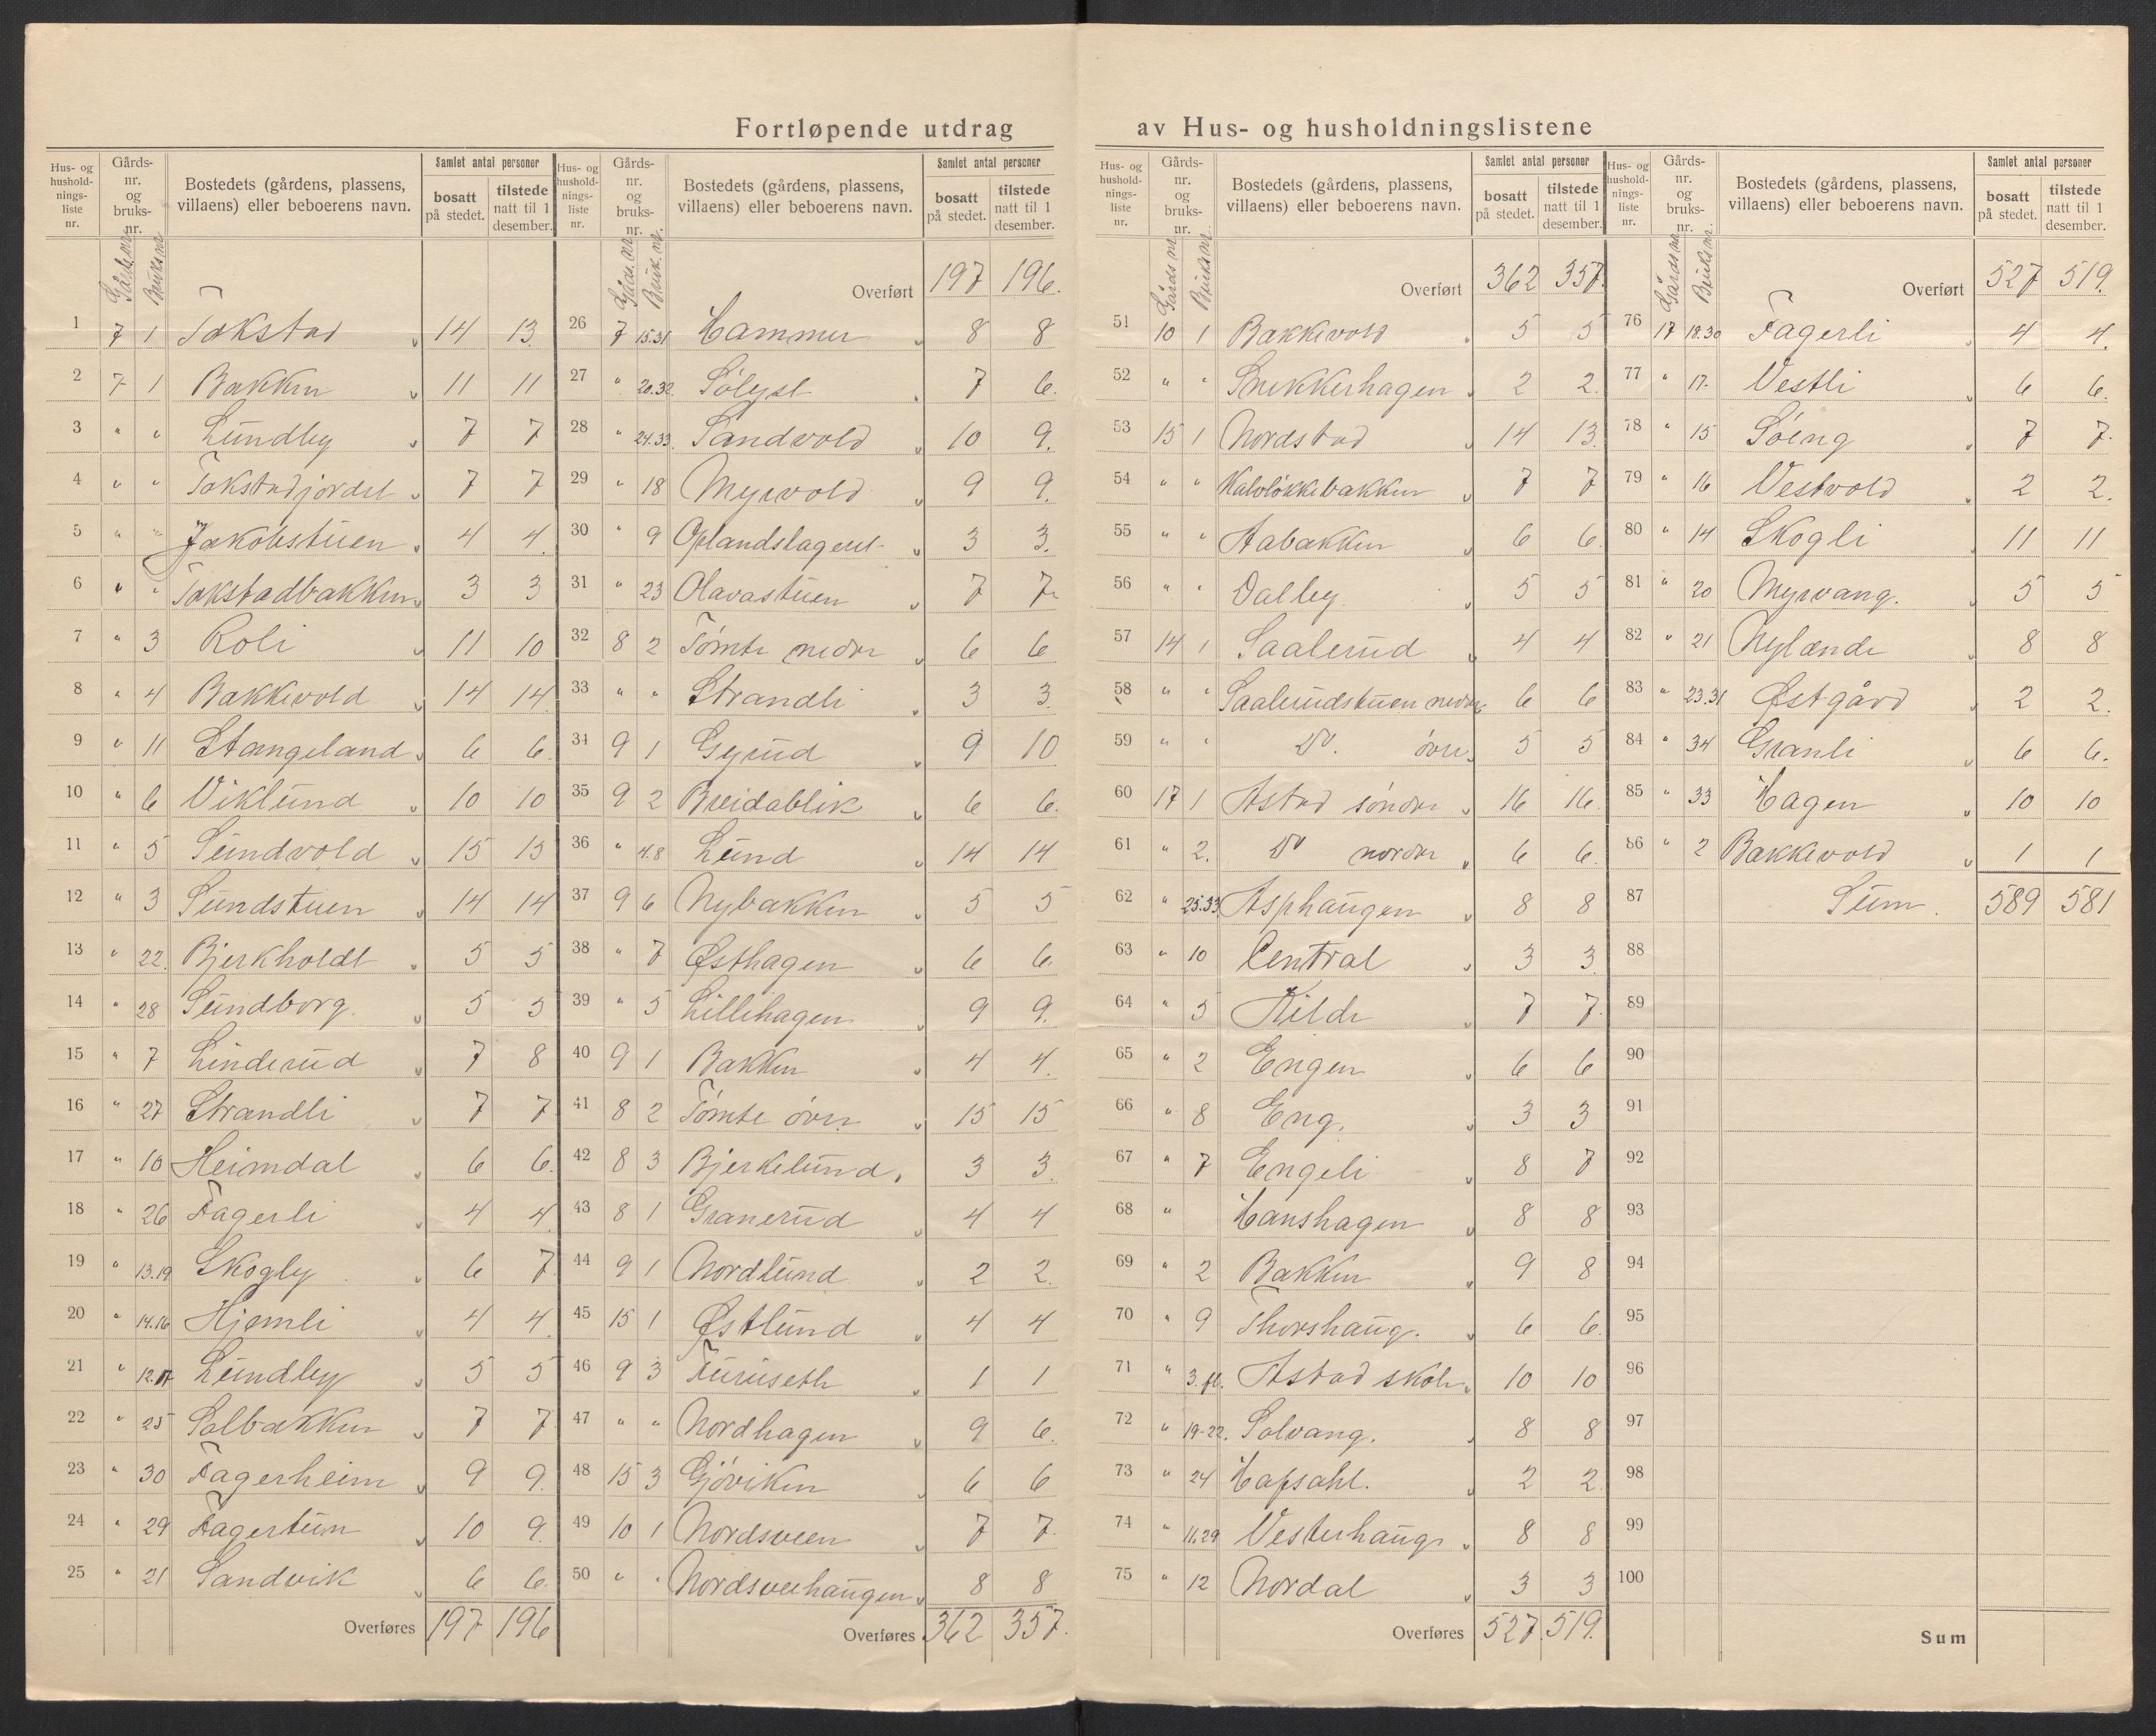 Fortløpende utdrag av Hus- og husholdningslistene
Hus- og husholdnings-liste nr. Gårds-nr. og bruks-nr. Bostedets (gårdens, plassens, villaens) eller beboerens navn. Samlet antal personer bosatt på stedet. tilstede natt til 1 desember.
Gårds nr Bruks nr
1 7 1 Tokstad 14 13
2 7 1 Bakken 11 11
3 " " Lundby 7 7
4 " " Tokstadjordet 7 7
5 " " Jakobstuen 4 4
6 " " Tokstadbakken 3 3
7 " 3 Roli 11 10
8 " 4 Bakkevold 14 14
9 " 11 Stangeland 6 6
10 " 6 Viklund 10 10
11 " 5 Sundvold 15 15
12 " 3 Sundstuen 14 14
13 " 22 Bjerkholdt 5 5
14 " 28 Sundborg 5 5
15 " 7 Linderud 7 8
16 " 27 Strandli 7 7
17 " 10 Heimdal 6 6
18 " 26 Fagerli 4 4
19 " 13.19 Skogly 6 7
20 " 14.16 Hjemli 4 4
21 " 12.17 Lundby 5 5
22 " 25 Solbakken 7 7
23 " 30 Fagerheim 9 9
24 " 29 Fagertun 10 9
25 " 21 Sandvik 6 6
Overføres 197 196
Hus- og husholdnings-liste nr. Gårds-nr. og bruks-nr. Bostedets (gårdens, plassens, villaens) eller beboerens navn. Samlet antal personer bosatt på stedet. tilstede natt til 1 desember.
Gårds nr Bruk. nr.
Overført 197 196.
26 7 15.31 Hammer 8 8
27 " 20.32 Sølyst 7 6
28 " 24.33 Sandvold 10 9
29 " 18 Myrvold 9 9
30 " 9 Oplandslaget 3 3
31 " 23 Olavastuen 7 7
32 8 2 Tømte nedre 6 6
33 " " Strandli 3 3
34 9 1 Gyrud 9 10
35 9 2 Breidablik 6 6
36 " 4.8 Lund 14 14
37 9 6 Nybakken 5 5
38 " 7 Østhagen 6 6
39 " 5 Lillehagen 9 9
40 9 1 Bakken 4 4
41 8 2 Tømte øvre 15 15
42 8 3 Bjerkelund 3 3
43 8 1 Granerud 4 4
44 9 1 Nordlund 2 2
45 15 1 Østlund 4 4
46 9 3 Furuseth 1 1
47 " " Nordhagen 9 6
48 15 3 Gjøviken 6 6
49 10 1 Nordsveen 7 7
50 " " Nordsveehaugen 8 8
Overføres 362 357.
Hus- og husholdnings-liste nr. Gårds-nr. og bruks-nr. Bostedets (gårdens, plassens, villaens) eller beboerens navn. Samlet antal personer bosatt på stedet. tilstede natt til 1 desember.
Gårds nr Bruks nr.
Overført 362 357.
51 10 1 Bakkevold 5 5
52 " " Snekkerhagen 2 2
53 15 1 Nordstad 14 13
54 " " Kalvløkkebakken 7 7
55 " " Aabakken 6 6
56 " " Dalby 5 5
57 14 1 Saalerud 4 4
58 " " Saalerudstuen nedre 6 6
59 " " Do. øvre 5 5
60 17 1 Astad søndre 16 16
61 " 2. Do nordre 6 6
62 " 25.33 Asphaugen 8 8
63 " 10 Central 3 3
64 " 5 Kilde 7 7
65 " 2 Engen 6 6
66 " 8 Eng. 3 3
67 " 7 Engeli 8 7
68 " Hanshagen 8 8
69 " 2 Bakken 9 8
70 " 9 Thorshaug. 6 6
71 " 3. fl. Astad skole 10 10
72 " 19-22. Solvang. 8 8
73 " 24 Hapsahl. 2 2
74 " 11.29 Vesterhaug 8 8
75 " 12 Nordal 3 3
Overføres 527 519.
Hus- og husholdnings-liste nr. Gårds-nr. og bruks-nr. Bostedets (gårdens, plassens, villaens) eller beboerens navn. Samlet antal personer bosatt på stedet. tilstede natt til 1 desember.
Gårds nr Bruks nr.
Overført 527 519.
76 17 18.30 Fagerli 4 4.
77 " 17 Vestli 6 6.
78 " 15 Søeng 7 7.
79 " 16 Vestvold 2 2.
80 " 14 Skogli 11 11
81 " 20 Myrvang. 5 5
82 " 21 Nylænde 8 8
83 " 23.31 Østgård 2 2.
84 " 34 Granli 6 6.
85 " 33 Hagen 10 10
86 " 2 Bakkevold 1 1
87 Sum. 589 581
88
89
90
91
92
93
94
95
96
97
98
99
100
Sum